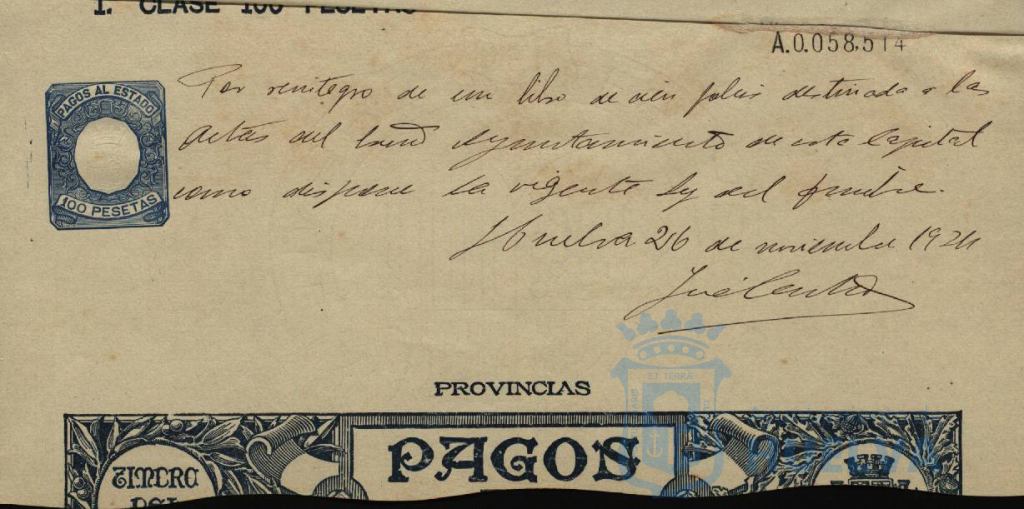 1. CLASE 100 PESETAS
A.0.058,514
PAGOS AL ESTADO
100 PESETAS
Por reintegro de un libro de cien folios destinado a las
actas del Excmo Ayuntamiento de esta Capital
como dispone la vigente Ley del timbre.
Huelva 26 de noviembre 1924
José
PROVINCIAS
PAGOS
TIMBRE
DEL
ET TERRÆ
HUELVA